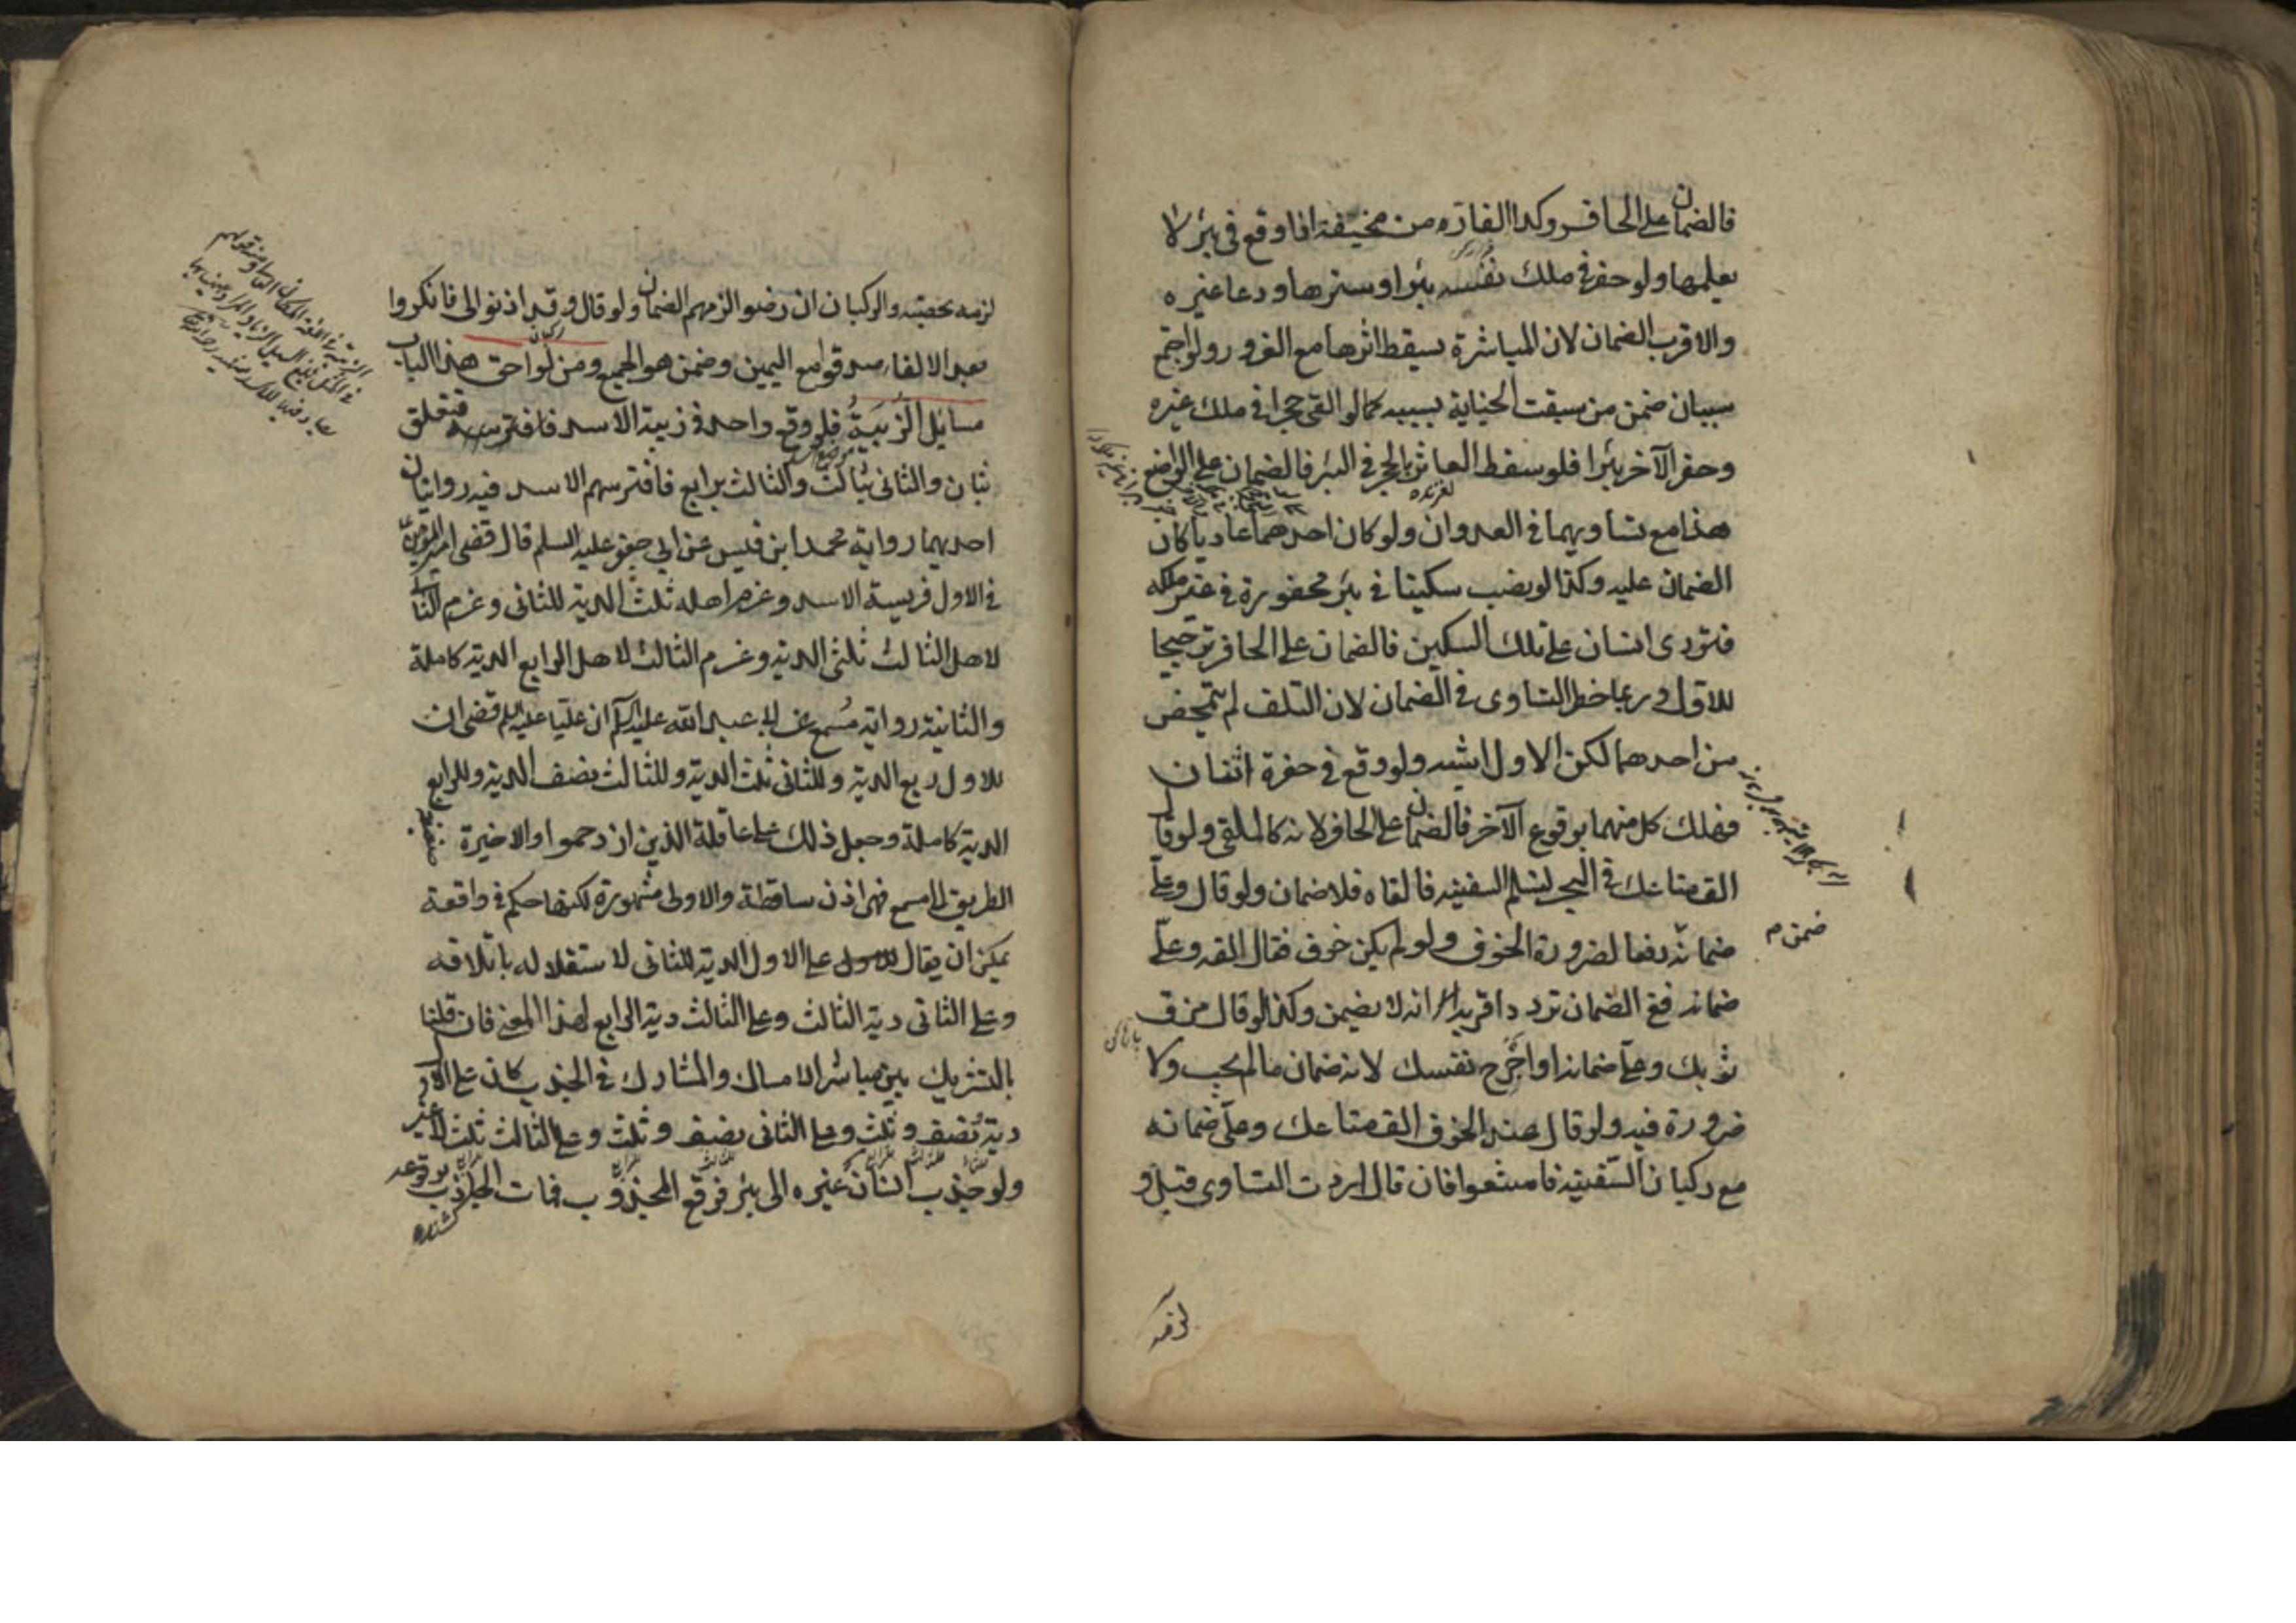 فالضمان على الحافر وكذا الفار من مخيفة اذا وقع في بئر لا
يعلمها ولو حفر في ملك نفسه بئرا وسترها ودعا غيره
والاقرب الضمان لان المباشرة يسقط اثرها مع الغرور ولو اجتمع
سببان ضمن من سبقت الجناية بسببه كما لو القى حجرا في ملك غيره
وحفر الآخر بئرا فلو سقط العاثر بالحجر في البئر فالضمان على الواضع
هذا مع تساويهما في العدوان ولو كان احدهما عاديا كان
الضمان عليه وكذا لو نصب سكينا في بئر محفورة في غير ملكه
فتردى انسان على تلك السكين فالضمان على الحافر ترجيحا
للاول وربما خطر التساوى في الضمان لان التلف لم يتمحض
من احدهما لكن الاول اشبه ولو وقع في حفرة اثنان
فهلك كل منهما بوقوع الآخر فالضمان على الحافر لانه كالملقى ولو قال
الق متاعك في البحر ليسلم السفينه فالقاه فلا ضمان ولو قال وعلى
ضمانه دفعا لضرورة الخوف ولو لم يكن خوف فقال القه وعلى
ضمن م
ضمانه ففي الضمان تردد اقربه انه لا يضمن وكذا لو قال مزق
ثوبك وعلى ضمانه او اجرح نفسك لانه ضمان ما لم يجب ولا
ضرورة فيه ولو قال عند الخوف الق متاعك وعلى ضمانه
مع ركبان السفينه فامتنعوا فان قال اردت التساوى قبل و
لزمه
لزمه بحصته والركبان ان رضوا لزمهم الضمان ولو قال وقد اذنوا لى فانكروا
بعد الالقاء صدقوا مع اليمين وضمن هو الجميع ومن لواحق هذا الباب
مسايل الزبية فلو وقع واحد في زبية الاسد فتعلق
بثان والثانى بثالث والثالث برابع فافترسهم الاسد فيه روايتان
احديهما رواية محمد ابن قيس عن ابي جعفر عليه السلم قال قضى امير المؤمنين
في الاول فريسة الاسد وغرم اهله ثلث الدية للثانى وغرم الثانى
لاهل الثالث ثلثى الدية وغرم الثالث لاهل الرابع الدية كاملة
والثانية رواية مسمع عن ابى عبد الله عليه السلم ان عليا عليه السلم قضى ان
للاول ربع الدية وللثانى ثلث الدية وللثالث نصف الدية وللرابع
الدية كاملة وجعل ذلك على عاقلة الذين ازدحموا والاخيرة ضعيفة
الطريق الى مسمع فهى اذن ساقطة والاولى مشهورة لكنها حكم في واقعة
يمكن ان يقال على الاول الدية للثانى لاستقلاله باتلافه
وعلى الثانى دية الثالث وعلى الثالث دية الرابع لهذا المعنى فان قلنا
بالتشريك بين مباشر الامساك والمشارك في الجذب كان على الاول
دية ونصف وثلث وعلى الثانى نصف وثلث وعلى الثالث ثلث لا غير
ولو جذب انسان غيره الى بئر فوقع المجذوب فمات الجاذب بوقوعه